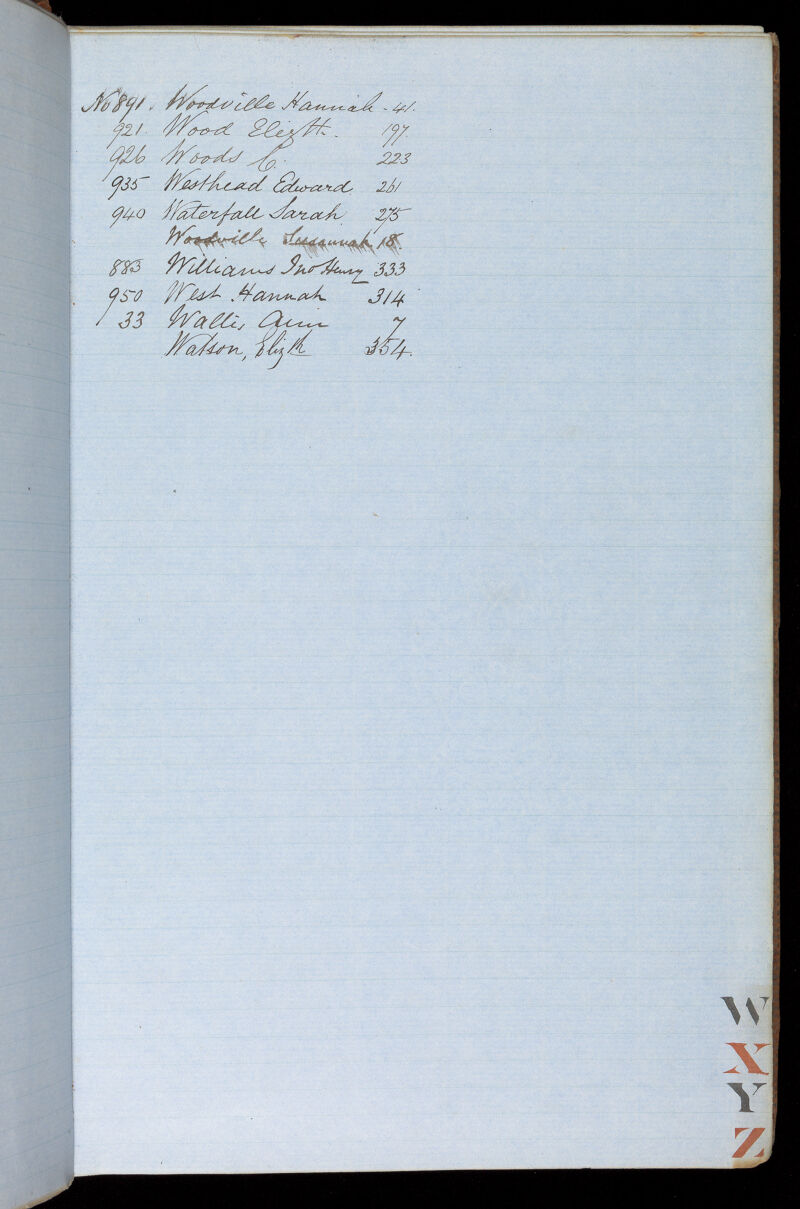 No 891. Woodville Hannah - 41.
921 Wood Elizth. 197.
926 Woods C. 223
935 Westhead Edward 261
940 Waterfall Sarah 275
Woodville Susannah 18
883 Williams Jno Henry 333
950 West Hannah 314
33 Wallis Ann 7
Watson, Elizth 354.
W
X
Y
Z